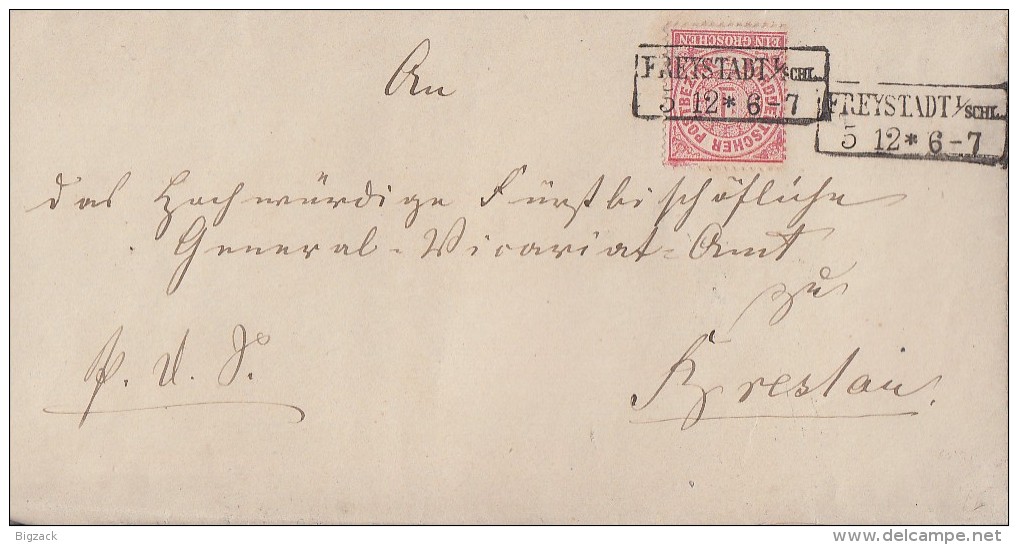 EIN GROSCHEN
NORDDEUTSCHER POSTBEZIRK
1
FREYSTADT I/SCHL.
5 12 * 6-7
FREYSTADT I/SCHL.
5 12 * 6-7
An
das Hochwürdige Fürstbischöfliche
General-Vicariat-Amt
zu
Breslau.
p. V. S.
Bigzack
delcampe.net